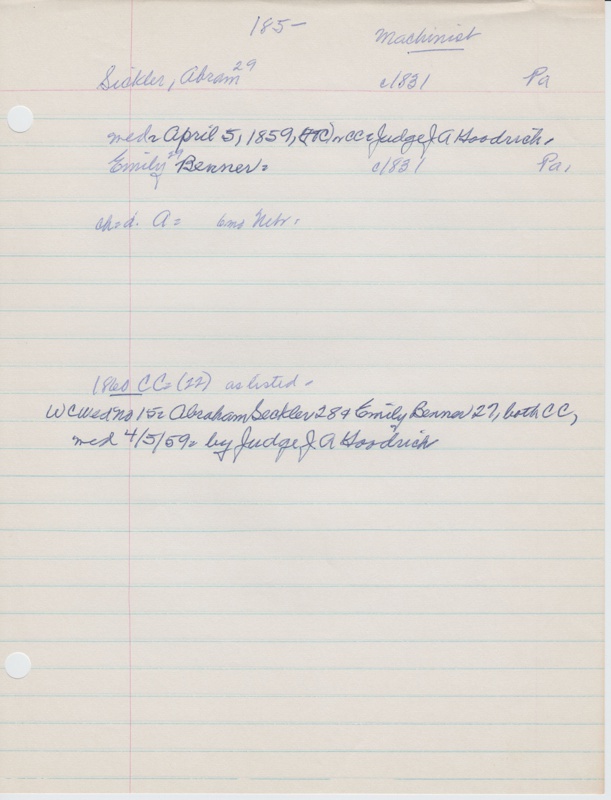 185-
Machinist
Sickler, Abram 29 c/1831 Pa
med= April 5, 1859, in CC= Judge J A Goodrich.
Emily 27 Benner= c/1831 Pa.
ch=d. A= 6mo Nebr.
1860 CC= (22) as listed.
WC Wed no 15= Abraham Seckler 28 & Emily Benner 27, both CC,
med 4/5/59= by Judge J A Goodrich